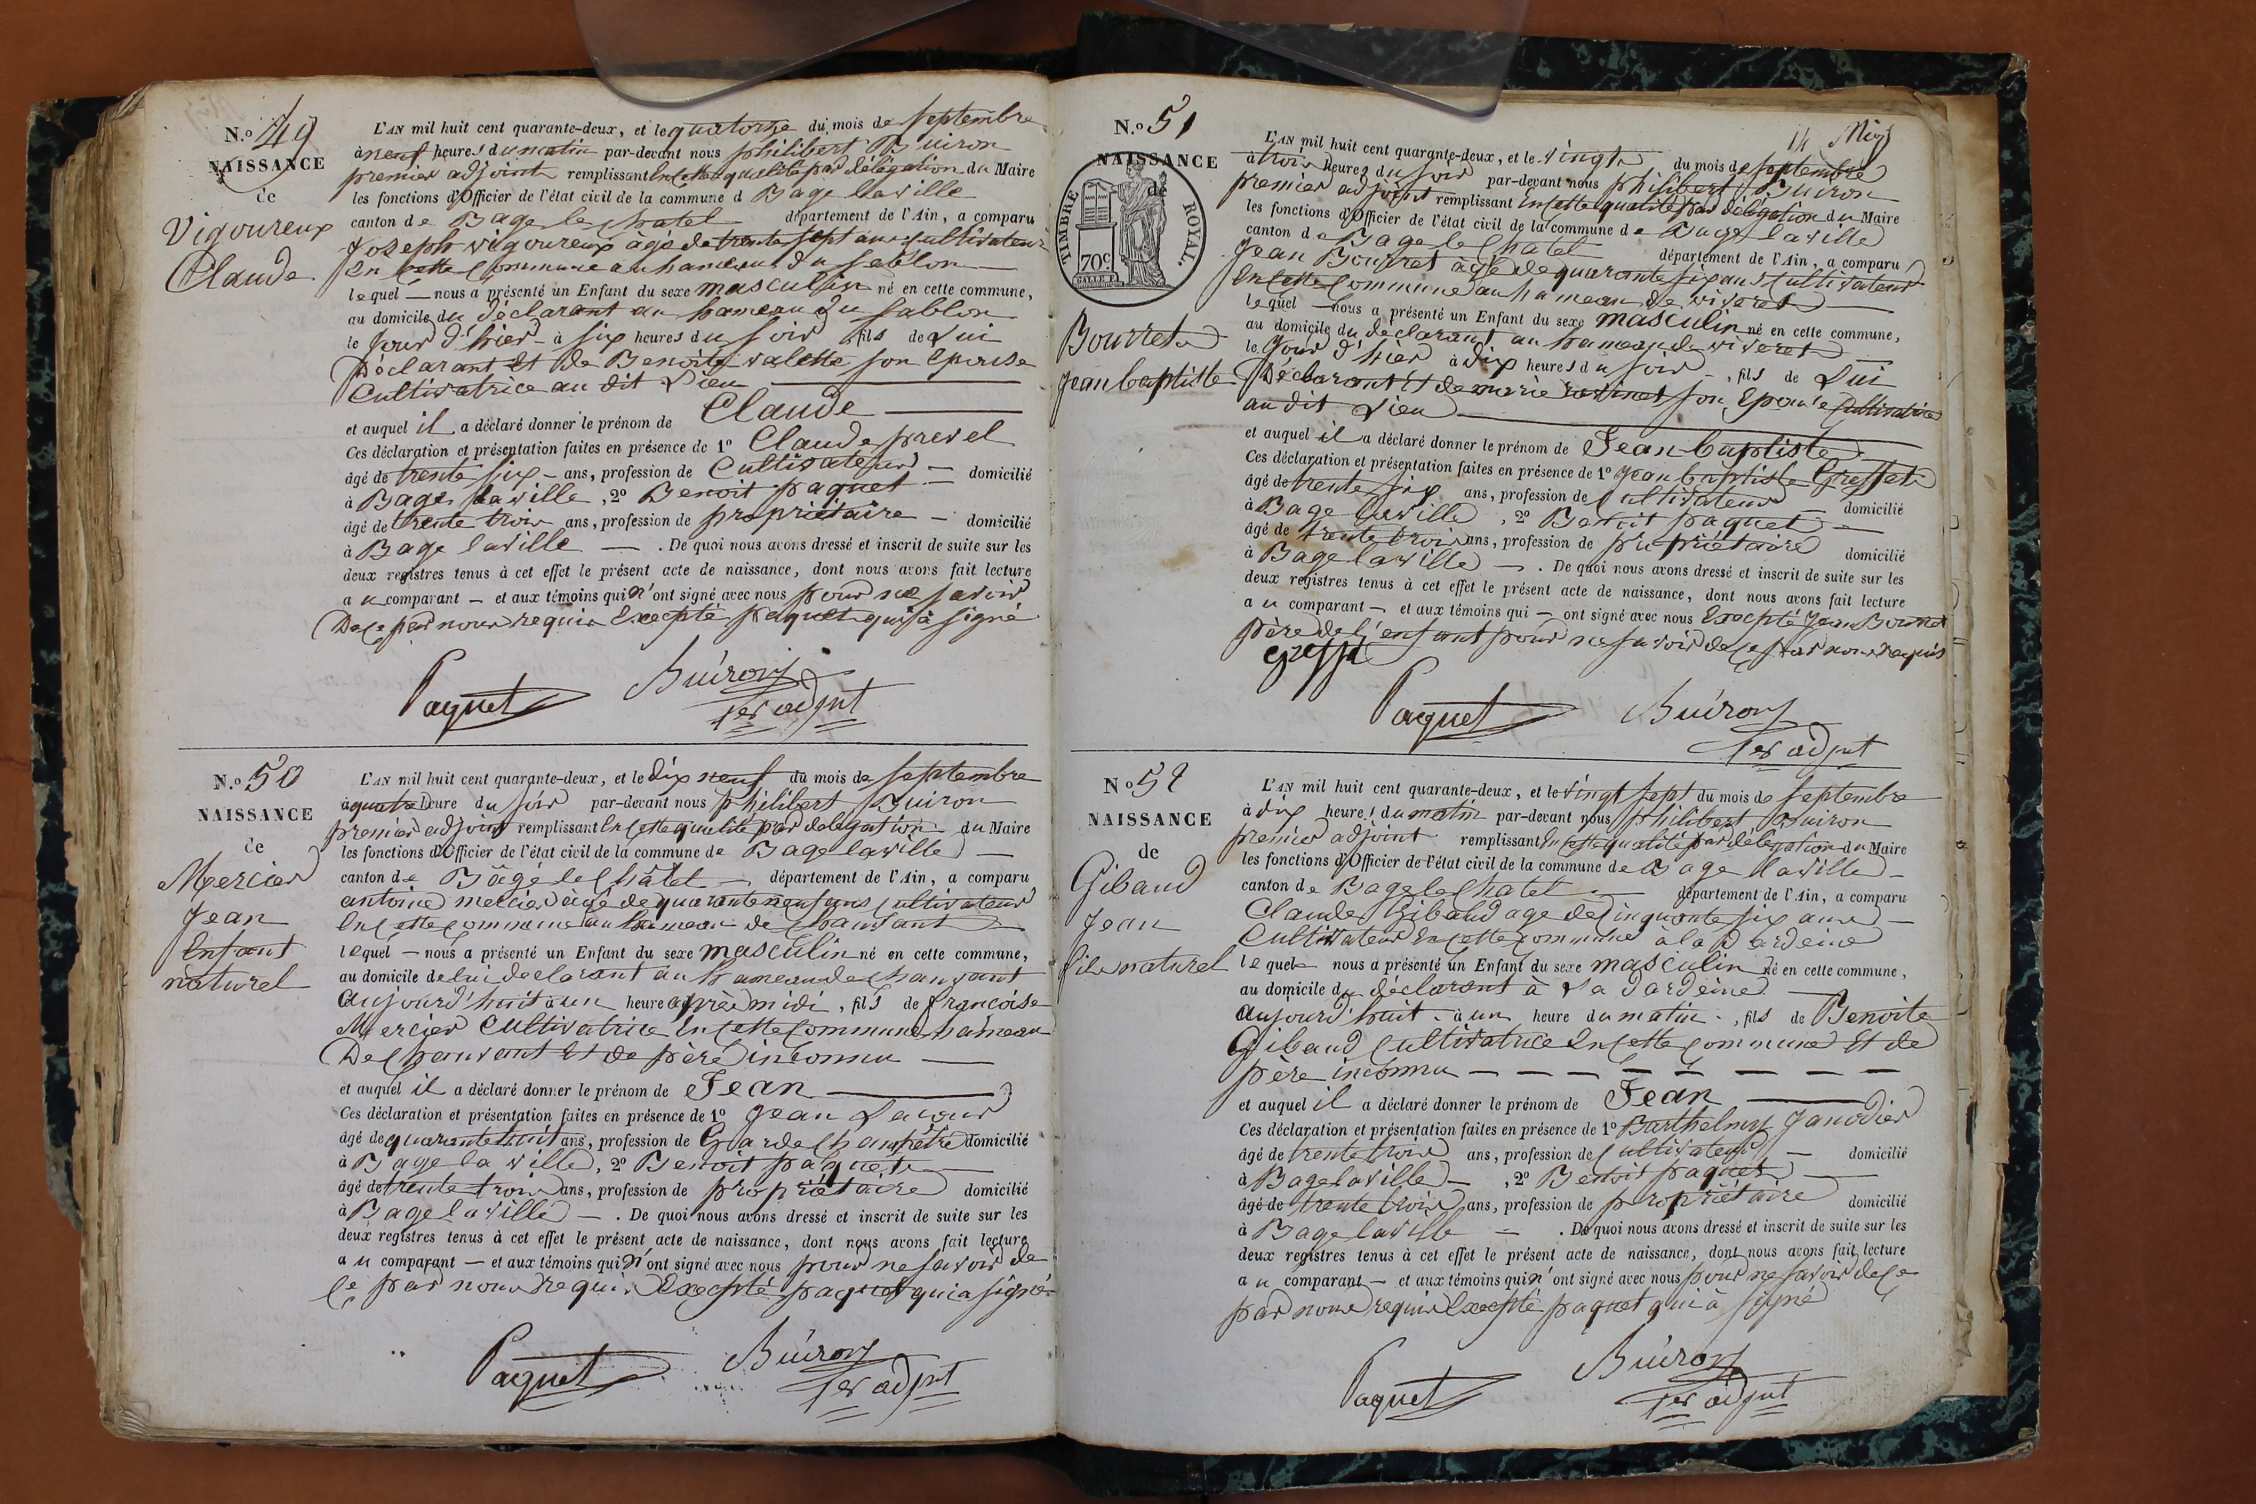 N.o 49
NAISSANCE
de
Vigoureux
Claude
L'AN mil huit cent quarante-deux, et le quatorze du mois de septembre
à neuf heures du matin par-devant nous philibert Buiron
premier adjoint remplissant en cette qualité par délégation du Maire
les fonctions d'Officier de l'état civil de la commune d Bage laville
canton de Bage le chatel département de l'Ain, a comparu
Joseph vigoureux agé de trente sept ans cultivateur
en cette commune au hameau du sablon
lequel — nous a présenté un Enfant du sexe masculin né en cette commune,
au domicile du déclarant au hameau du sablon
le jour d'hier à six heures du soir fils de Lui
Déclarant et de Benoite valette son epouse
Cultivatrice au dit Lieu
et auquel il a déclaré donner le prénom de Claude
Ces déclaration et présentation faites en présence de 1o Claude prevel
âgé de trente six ans, profession de Cultivateur domicilié
à Bage laville, 2o Benoit paquet
âgé de trente trois ans, profession de propriétaire domicilié
à Bage laville — . De quoi nous avons dressé et inscrit de suite sur les
deux registres tenus à cet effet le présent acte de naissance, dont nous avons fait lecture
au comparant — et aux témoins qui n'ont signé avec nous pour ne savoir
De ce par nous requis Excepté paquet qui à signé
Paquet Buiron
1er adjnt
N.o 50
NAISSANCE
de
Mercier
Jean
Enfant
naturel
L'AN mil huit cent quarante-deux, et le dix neuf du mois de septembre
à quatre heure du soir par-devant nous philibert Buiron
premier adjoint remplissant en cette qualité par delegation du Maire
les fonctions d'Officier de l'état civil de la commune de Bage laville
canton de Bâgé le Châtel département de l'Ain, a comparu
antoine mercier âgé de quarante neuf ans cultivateur
en cette commune au hameau de chanvant
lequel — nous a présenté un Enfant du sexe masculin né en cette commune,
au domicile de lui declarant au hameau de chanvant
aujourd'huit à un heure après midi, fils de françoise
Mercier Cultivatrice en cette commune hameau
De chanvant et de père inconnu
et auquel il a déclaré donner le prénom de Jean
Ces déclaration et présentation faites en présence de 1o Jean Lacour
âgé de quarante huit ans, profession de Garde Champêtre domicilié
à Bage la ville, 2o Benoit paquet
âgé de trente trois ans, profession de propriétaire domicilié
à Bage laville — . De quoi nous avons dressé et inscrit de suite sur les
deux registres tenus à cet effet le présent acte de naissance, dont nous avons fait lecture
au comparant — et aux témoins qui n'ont signé avec nous pour ne savoir de
ce par nous requis Excepté paquet qui a signé
Paquet Buiron
1er adjnt
14 
N.o 51
NAISSANCE
de
TIMBRE ROYAL.
70c
Bourret
jean baptiste
L'AN mil huit cent quarante-deux, et le vingt du mois de septembre
à trois heures du soir par-devant nous philibert Buiron
premier adjoint remplissant en cette qualité par délégation du Maire
les fonctions d'Officier de l'état civil de la commune de Bage laville
canton de Bage le Chatel département de l'Ain, a comparu
Jean Bourret âgé de quarante six ans Cultivateur
en cette commune au hameau de viveret
lequel nous a présenté un Enfant du sexe masculin né en cette commune,
au domicile du déclarant au hameau de viveret
le jour d'hier à dix heures du soir, fils de Lui
Déclarant et de marie son Epouse Cultivatrice
au dit Lieu
et auquel il a déclaré donner le prénom de Jean baptiste
Ces déclaration et présentation faites en présence de 1o jean baptiste Greffet
âgé de trente six ans, profession de Cultivateur domicilié
à Bage laville, 2o Benoit paquet
âgé de trente trois ans, profession de propriétaire domicilié
à Bage laville — . De quoi nous avons dressé et inscrit de suite sur les
deux registres tenus à cet effet le présent acte de naissance, dont nous avons fait lecture
au comparant — et aux témoins qui — ont signé avec nous Excepté Jean Bourret
père de l'enfant pour ne savoir de ce par nous requis
Paquet Buiron
1er adjnt
No 52
NAISSANCE
de
Gibaud
Jean
fils naturel
L'AN mil huit cent quarante-deux, et le vingt sept du mois de septembre
à dix heures du matin par-devant nous philibert Buiron
premier adjoint remplissant en cette qualité par délégation du Maire
les fonctions d'Officier de l'état civil de la commune de Bage laville
canton de Bage le Chatel département de l'Ain, a comparu
Claude Gibaud age de cinquante six ans
Cultivateur en cette commune à la Dardeine
lequel nous a présenté un Enfant du sexe masculin né en cette commune,
au domicile du déclarant à La Dardeine
aujourd'huit à un heure du matin, fils de Benoite
Gibaud cultivatrice en cette commune et de
père inconnu
et auquel il a déclaré donner le prénom de Jean
Ces déclaration et présentation faites en présence de 1o Barthelmy Janodier
âgé de trente trois ans, profession de cultivateur — domicilié
à Bage laville —, 2o Benoit paquet
âgé de trente trois ans, profession de propriétaire domicilié
à Bage laville — . De quoi nous avons dressé et inscrit de suite sur les
deux registres tenus à cet effet le présent acte de naissance, dont nous avons fait lecture
au comparant — et aux témoins qui n'ont signé avec nous pour ne savoir de ce
par nous requis Excepté paquet qui à signé
Paquet Buiron
1er adjnt